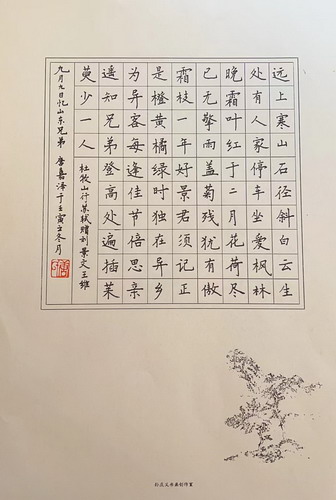 远上寒山石径斜白云生
处有人家停车坐爱枫林
晚霜叶红于二月花荷尽
已无擎雨盖菊残犹有傲
霜枝一年好景君须记正
是橙黄橘绿时独在异乡
为异客每逢佳节倍思亲
遥知兄弟登高处遍插茱
萸少一人 杜牧山行苏轼赠刘景文王维
九月九日忆山东兄弟 嘉涛于壬寅立冬月
创作室